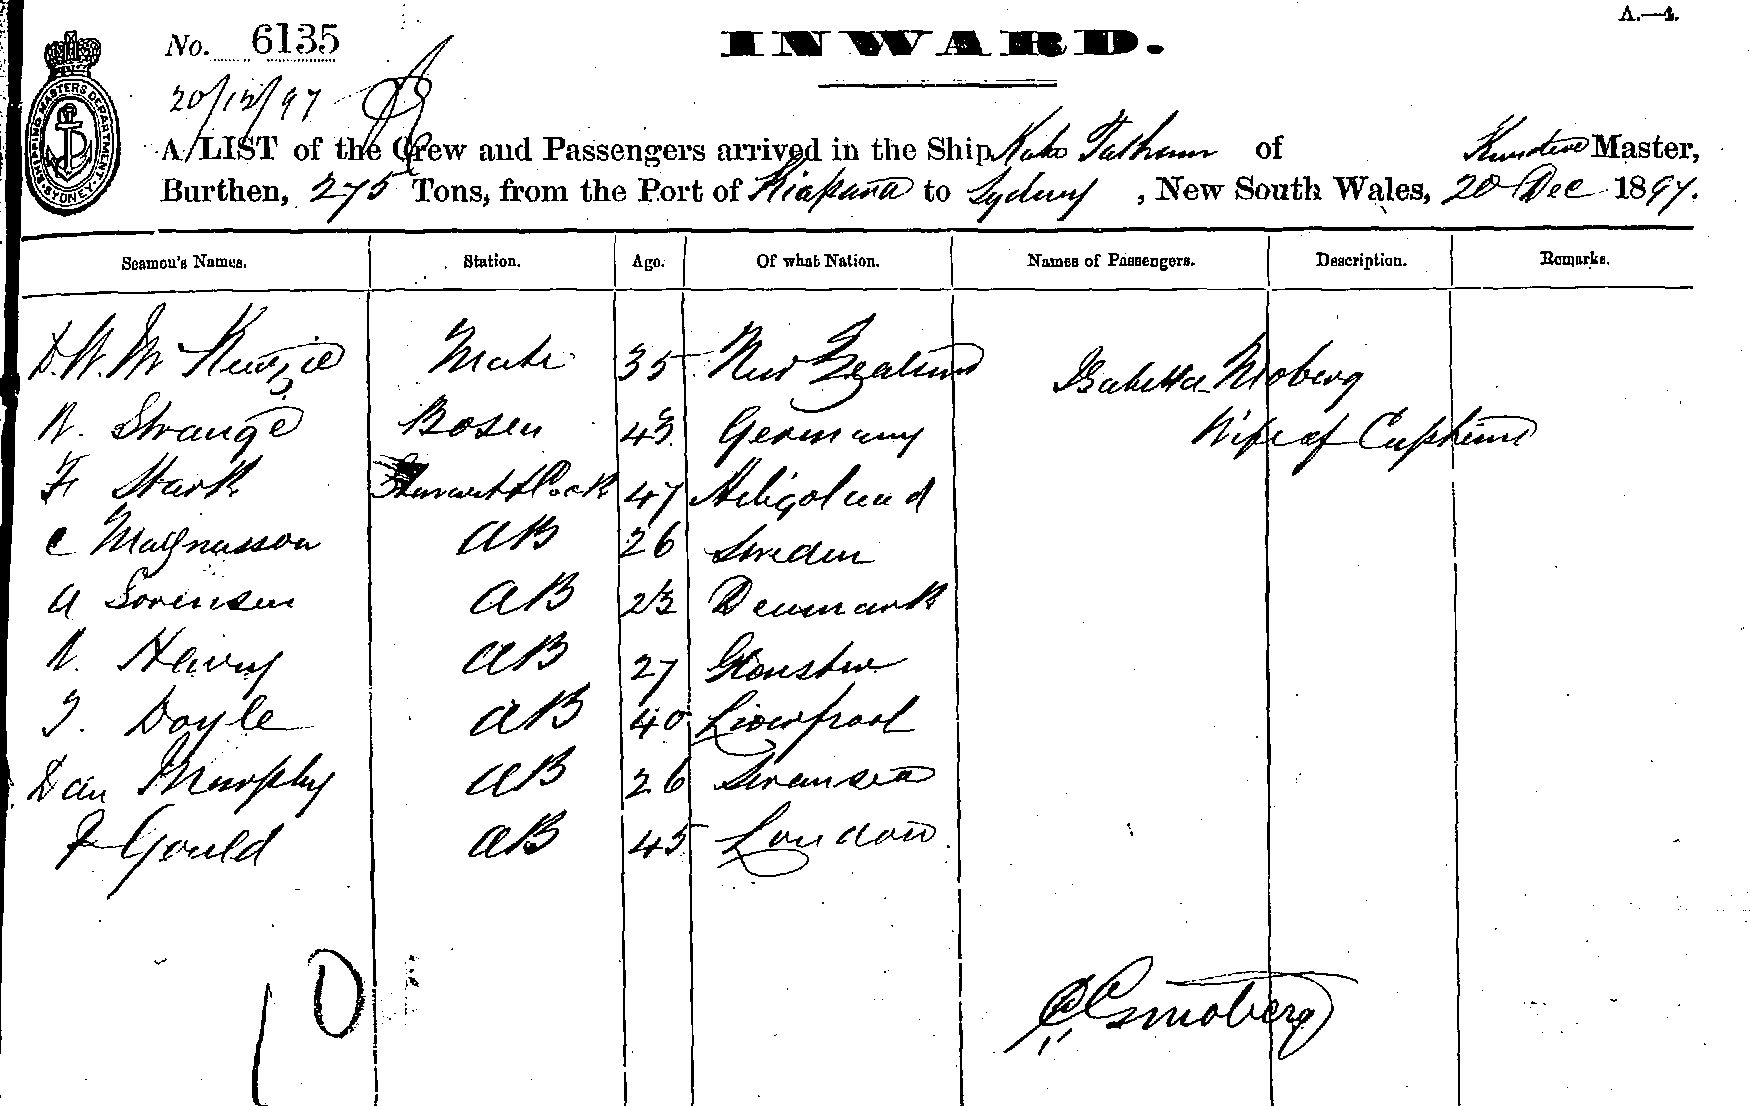 A.—4.
No. 6135
INWARD.
20/12/97
A LIST of the Crew and Passengers arrived in the Ship Kate Tatham of Master,
Burthen, 275 Tons, from the Port of Kaipara to Sydney, New South Wales, 20 Dec 1897.
Seamen's Names. Station. Age. Of what Nation. Names of Passengers. Description. Remarks.
D. W. McKenzie Mate 35 New Zealand Isabella Moberg
N. Strange Bosen 43 Germany Wife of Captain
F Stark Steward & Cook 47 Heligoland
C Magnusson AB 26 Sweden
A Sorensen AB 23 Denmark
N. Henry AB 27 Glouster
J. Doyle AB 40 Liverpool
Dan Murphy AB 26 Swansea
F Gould AB 45 London
10